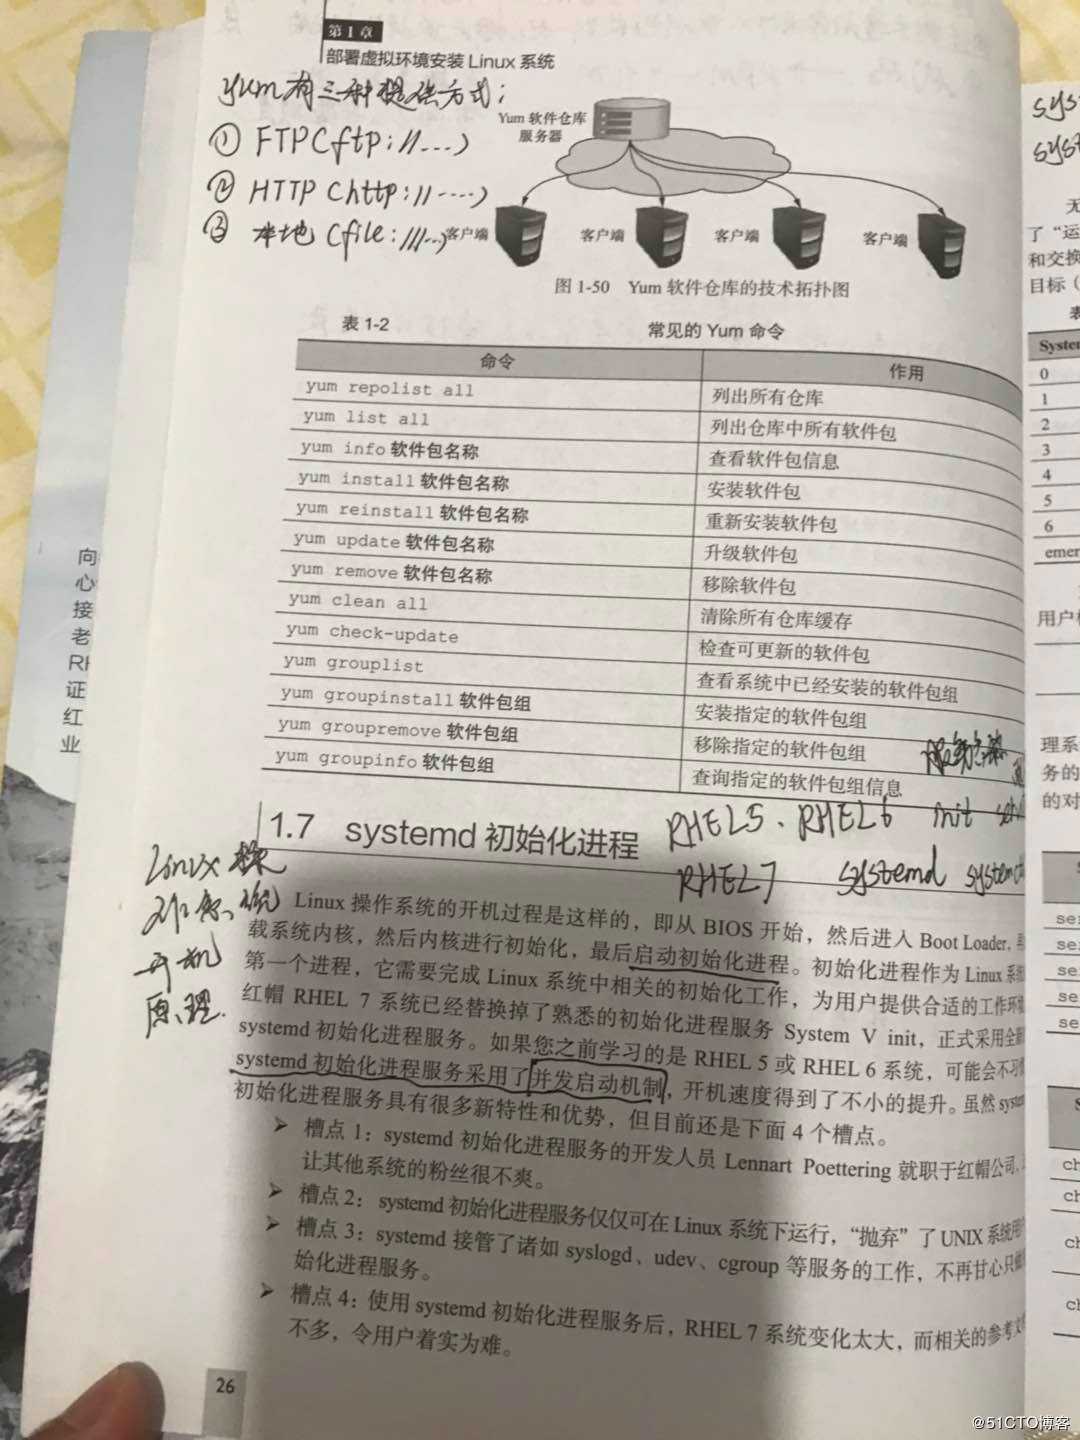 第1章
部署虚拟环境安装 Linux 系统
yum有三种提供方式：
① FTP(ftp://...)
② HTTP (http://....)
③ 本地 (file:///...)
Yum 软件仓库
服务器
客户端
客户端
客户端
客户端
图 1-50 Yum 软件仓库的技术拓扑图
表 1-2 常见的 Yum 命令
命令 作用
yum repolist all 列出所有仓库
yum list all 列出仓库中所有软件包
yum info 软件包名称 查看软件包信息
yum install 软件包名称 安装软件包
yum reinstall 软件包名称 重新安装软件包
yum update 软件包名称 升级软件包
yum remove 软件包名称 移除软件包
yum clean all 清除所有仓库缓存
yum check-update 检查可更新的软件包
yum grouplist 查看系统中已经安装的软件包组
yum groupinstall 软件包组 安装指定的软件包组
yum groupremove 软件包组 移除指定的软件包组
yum groupinfo 软件包组 查询指定的软件包组信息
1.7 systemd 初始化进程
RHEL5、RHEL6 init
RHEL7 systemd
Linux
开机
原理.
Linux 操作系统的开机过程是这样的，即从 BIOS 开始，然后进入 Boot Loader，
载系统内核，然后内核进行初始化，最后启动初始化进程。初始化进程作为 Linux 系统
第一个进程，它需要完成 Linux 系统中相关的初始化工作，为用户提供合适的工作环境
红帽 RHEL 7 系统已经替换掉了熟悉的初始化进程服务 System V init，正式采用全新
systemd 初始化进程服务。如果您之前学习的是 RHEL 5 或 RHEL 6 系统，可能会不习惯
systemd 初始化进程服务采用了并发启动机制，开机速度得到了不小的提升。虽然 system
初始化进程服务具有很多新特性和优势，但目前还是下面 4 个槽点。
➢ 槽点 1：systemd 初始化进程服务的开发人员 Lennart Poettering 就职于红帽公司，
让其他系统的粉丝很不爽。
➢ 槽点 2：systemd 初始化进程服务仅仅可在 Linux 系统下运行，“抛弃”了 UNIX 系统用
➢ 槽点 3：systemd 接管了诸如 syslogd、udev、cgroup 等服务的工作，不再甘心只做
始化进程服务。
➢ 槽点 4：使用 systemd 初始化进程服务后，RHEL 7 系统变化太大，而相关的参考文
不多，令用户着实为难。
26
向
心
接
老
RH
证
红
业
无
了“运
和交换
目标（
表
System
0
1
2
3
4
5
6
emer
用户
理系
务的
的对
S
se
se
se
se
se
S
ch
ch
ch
ch
@51CTO博客